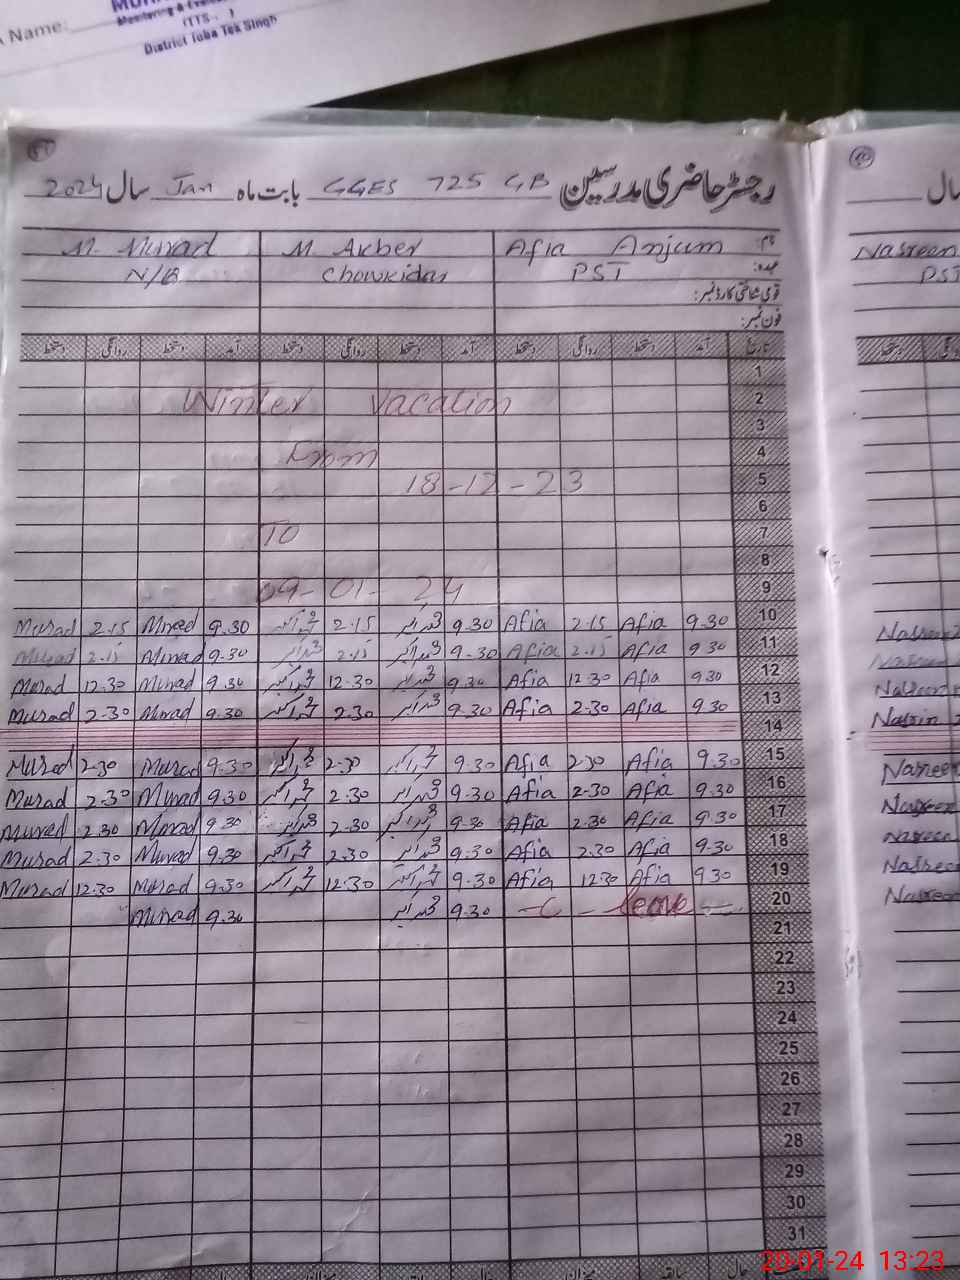 Name:
Monitoring & Evalu
(TTS- )
District Toba Tek Singh
رجسٹر حاضری مدرسین GGES 725 GB بابت ماہ Jan سال 2024
نام: Afia Anjum M. Akber M. Murad
عہدہ: PST Chowkidar N/Q
قومی شناختی کارڈ نمبر:
فون نمبر:
تاریخ آمد دستخط روانگی دستخط آمد دستخط روانگی دستخط آمد دستخط روانگی دستخط
1
2 Winter Vacation
3
4 From
5 18-12-23
6
7 TO
8
9 09-01-24
10 9.30 Afia 2.15 Afia 9.30 محمد اکبر 2.15 محمد اکبر 9.30 Murad 2.15 Murad
11 9.30 Afia 2.15 Afia 9.30 محمد اکبر 2.15 محمد اکبر 9.30 Murad 2.15 Murad
12 9.30 Afia 12.30 Afia 9.30 محمد اکبر 12.30 محمد اکبر 9.30 Murad 12.30 Murad
13 9.30 Afia 2.30 Afia 9.30 محمد اکبر 2.30 محمد اکبر 9.30 Murad 2.30 Murad
14
15 9.30 Afia 2.30 Afia 9.30 محمد اکبر 2.30 محمد اکبر 9.30 Murad 2.30 Murad
16 9.30 Afia 2.30 Afia 9.30 محمد اکبر 2.30 محمد اکبر 9.30 Murad 2.30 Murad
17 9.30 Afia 2.30 Afia 9.30 محمد اکبر 2.30 محمد اکبر 9.30 Murad 2.30 Murad
18 9.30 Afia 2.30 Afia 9.30 محمد اکبر 2.30 محمد اکبر 9.30 Murad 2.30 Murad
19 9.30 Afia 12.30 Afia 9.30 محمد اکبر 12.30 محمد اکبر 9.30 Murad 12.30 Murad
20 -C - leave - 9.30 محمد اکبر 9.30 Murad
21
22
23
24
25
26
27
28
29
30
31
سال
Nasreen
PST
دستخط
Nasreen
Nasreen
Nasreen
Nasrin
Nasreen
Nasreen
Nasreen
Nasreen
Nasreen
20-01-24 13:23